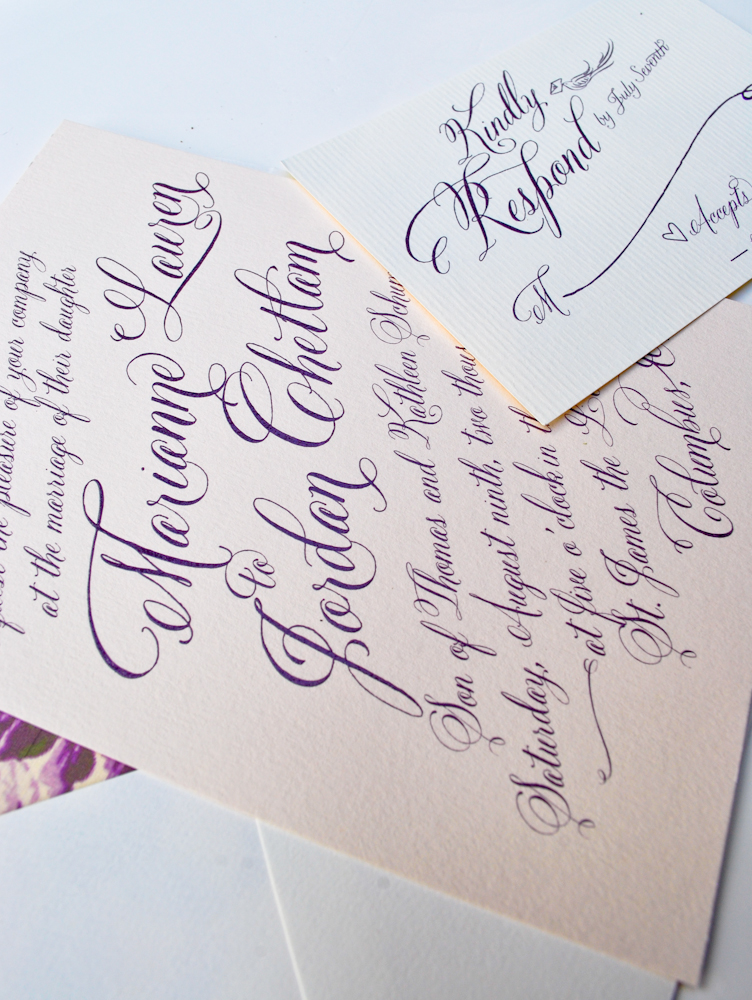 the pleasure of your company
at the marriage of their daughter
Marianne Lauren
to
Jordan Chettam
Son of Thomas and Kathleen
Saturday, August ninth, two
at five o'clock in
St. James the
Columbus,
Kindly
Respond
by July Seventh
M
Accepts